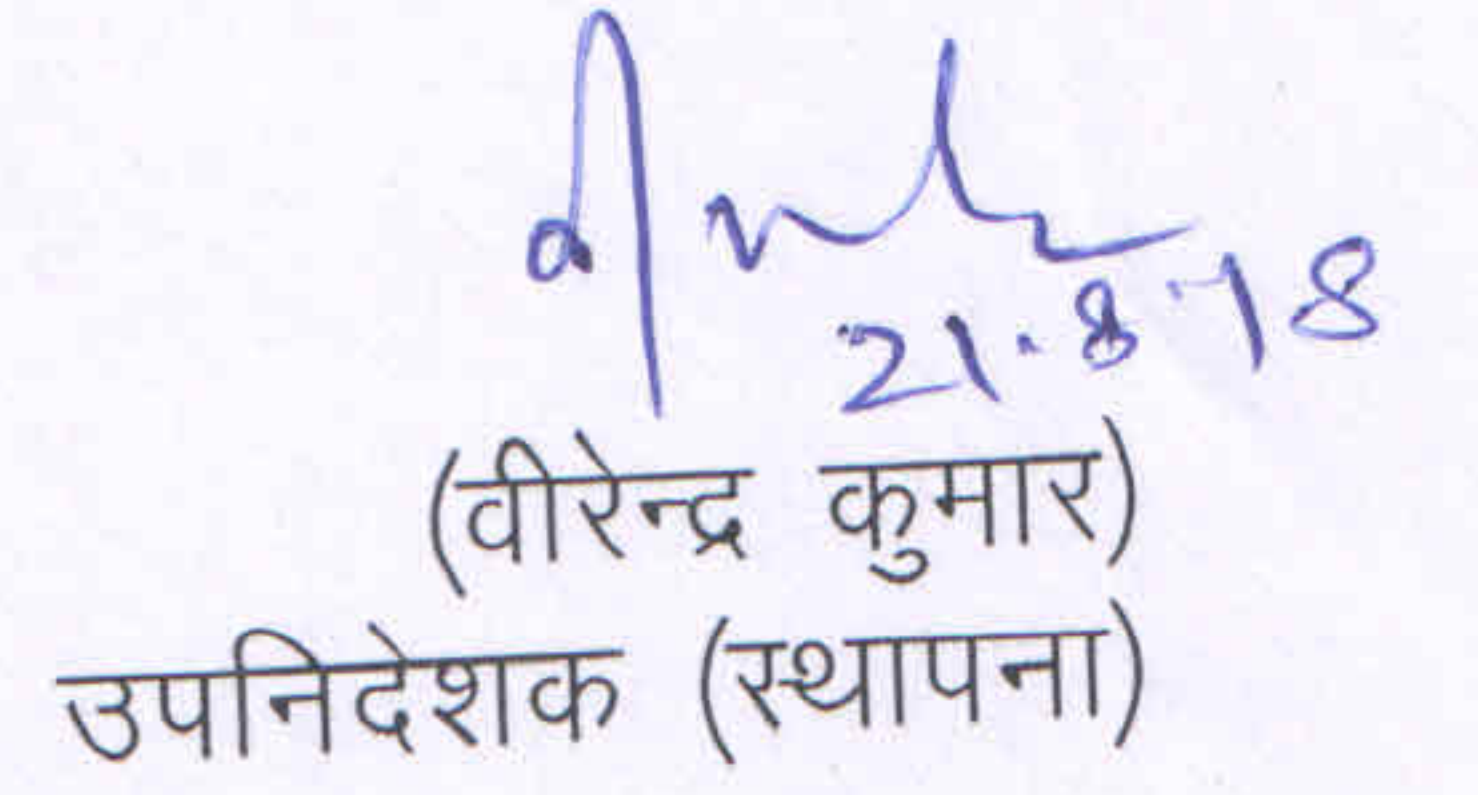 21.8.18
(वीरेन्द्र कुमार)
उपनिदेशक (स्थापना)